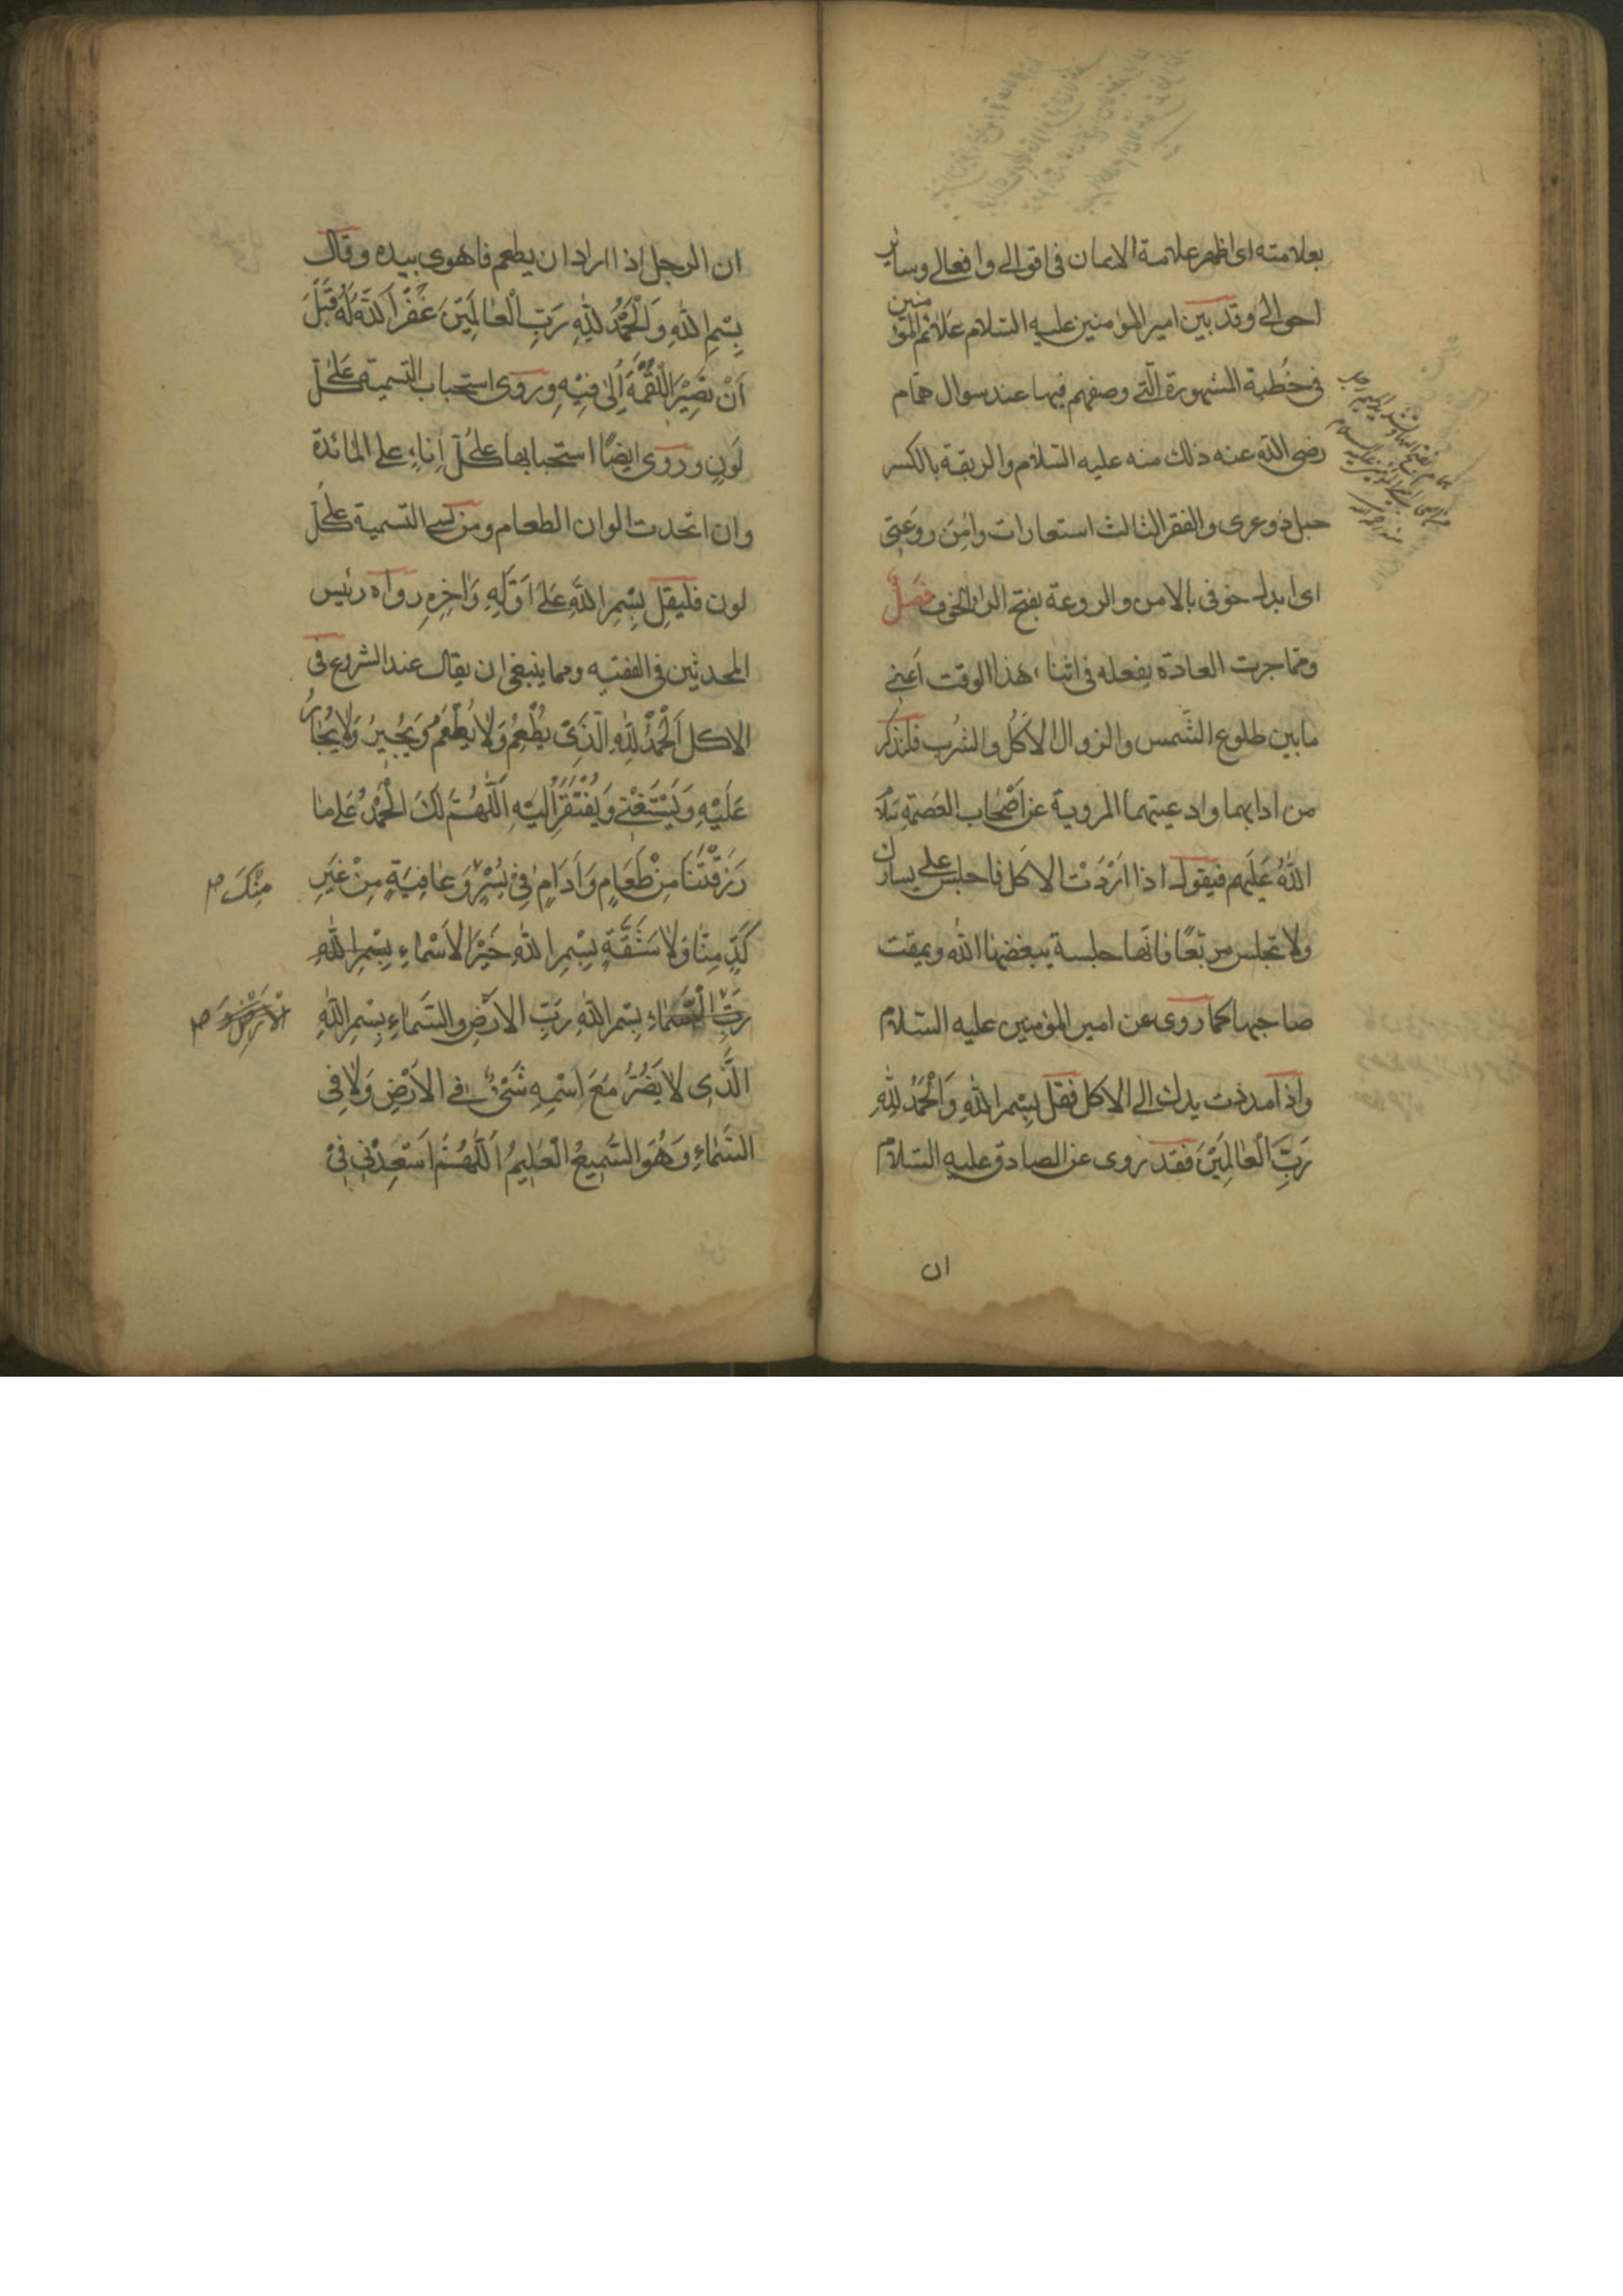 بعلامته اى اظهر علامة الايمان فى اقوالى وافعالى وساير
احوالى وقد بين امير المؤمنين عليه السلام علائم المؤمنين
فى خطبة المشهورة الّتى وصفهم فيها عند سوال همام
رضى الله عنه ذلك منه عليه السّلام والربقة بالكسر
حبل ذو عرى والفقر الثالث استعارات وامِن رَوعَتى
اى ابدل خوفى بالامن والروعة بفتح الراء الخوف فصل
ومّما جرت العادة بفعله فى اثناء هذا الوقت اَعنى
مابين طلوع الشّمس والزوال الاكل والشرب فلنذكر
من ادابهما وادعيتهما المروية عن اَصْحاب العصمة سَلامُ
اللّهُ عَلَيهم فيقول اذا اَرَدْتَ الاكل فاجلس على يسارك
ولا تجلس مربّعًا فانّها جلسة يبغضها الله ويمقت
صاحبها كما روى عن امير المؤمنين عليه السّلام
واذا مددت يدك الى الاكل فقل بِسْمِ اللهِ وَالْحَمْدُ لِلّهِ
رَبِّ الْعالَمِيْنَ فقد روى عن الصادق عليه السّلام
ان
ان الرجل اذا اراد ان يطعم فاهوى بيده وقال
بِسْمِ اللهِ وَالْحَمْدُ لِلّهِ رَبِّ الْعالَمِيْنَ غَفَرَ اللّهُ لَهُ قَبْلَ
اَنْ تَصِيْرَ اللُّقْمَةُ اِلى فِيْهِ وروى استحباب التسمية عَلى كلّ
لَونٍ وروى ايضًا استحبابها على كُلّ اِناءٍ على المائدة
وان اتحدت الوان الطعام ومن نسى التسمية على كُلّ
لون فليقل بِسْمِ اللّهِ عَلى اَوَّلِهِ وَاخِرِهِ رواه رئيس
المحدثين فى الفقيه ومما ينبغى ان يقال عند الشروع فى
الاكل اَلْحَمْدُ لِلّهِ الَّذى يُطْعِمُ وَلا يُطْعَمُ وَيُجِيرُ وَلا يُجارُ
عَلَيْهِ وَيَسْتَغْنى وَيُفْتَقَرُ اِلَيْهِ اَللّهُمَّ لَكَ الْحَمْدُ عَلى ما
رَزَقْتَنا مِنْ طَعامٍ وَاَدامٍ فى يُسْرٍ وَعافِيَةٍ مِنْ غَيرِ
مِنْكَ
كَدٍّ مِنّا وَلا مَشَقَّةٍ بِسْمِ اللهِ خَيْرِ الاَسْماءِ بِسْمِ اللهِ
رَبِّ السَّماءِ بِسْمِ اللهِ رَبّ الاَرْضِ والسَّماءِ بِسْمِ اللهِ
الَّذى لا يَضُرُّ مَعَ اسْمِهِ شَىْءٌ فى الاَرْضِ وَلا فِى
السَّماءِ وَهُوَ السَّمِيعُ الْعَلِيمُ اَللّهُمَّ اَسْعِدْنِى فى